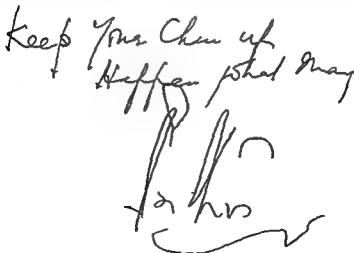 Keep Your Chin up
Happen what May